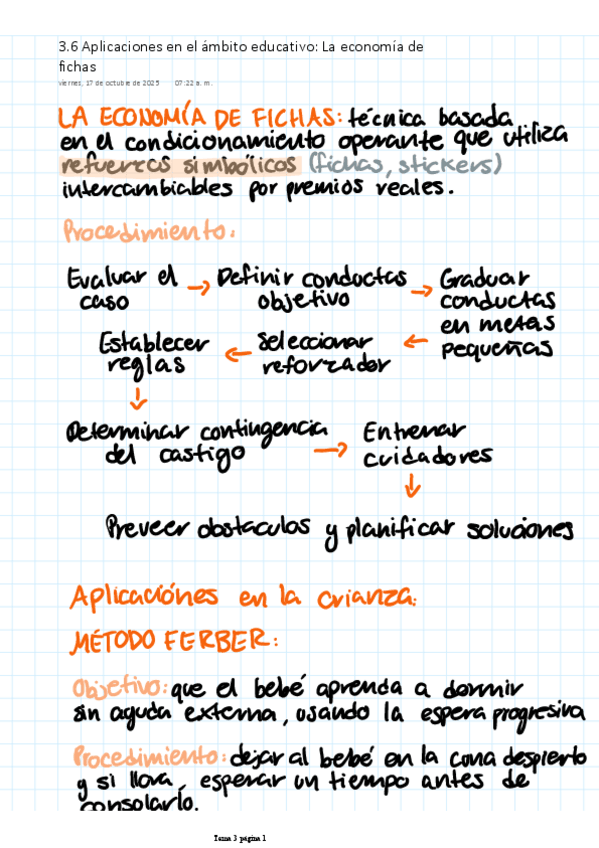 3.6 Aplicaciones en el ámbito educativo: La economía de
fichas
viernes, 17 de octubre de 2025 07:22 a. m.
LA ECONOMÍA DE FICHAS: técnica basada
en el condicionamiento operante que utiliza
refuerzos simbólicos (fichas, stickers)
intercambiables por premios reales.
Procedimiento:
Evaluar el caso → Definir conductas objetivo → Graduar conductas en metas pequeñas
← Seleccionar reforzador
← Establecer reglas
↓
Determinar contingencia del castigo → Entrenar cuidadores
↓
Preveer obstaculos y planificar soluciones
Aplicaciónes en la crianza:
MÉTODO FERBER:
Objetivo: que el bebé aprenda a dormir
sin ayuda externa, usando la espera progresiva
Procedimiento: dejar al bebé en la cuna despierto
y si llora, esperar un tiempo antes de
consolarlo.
Tema 3 página 1